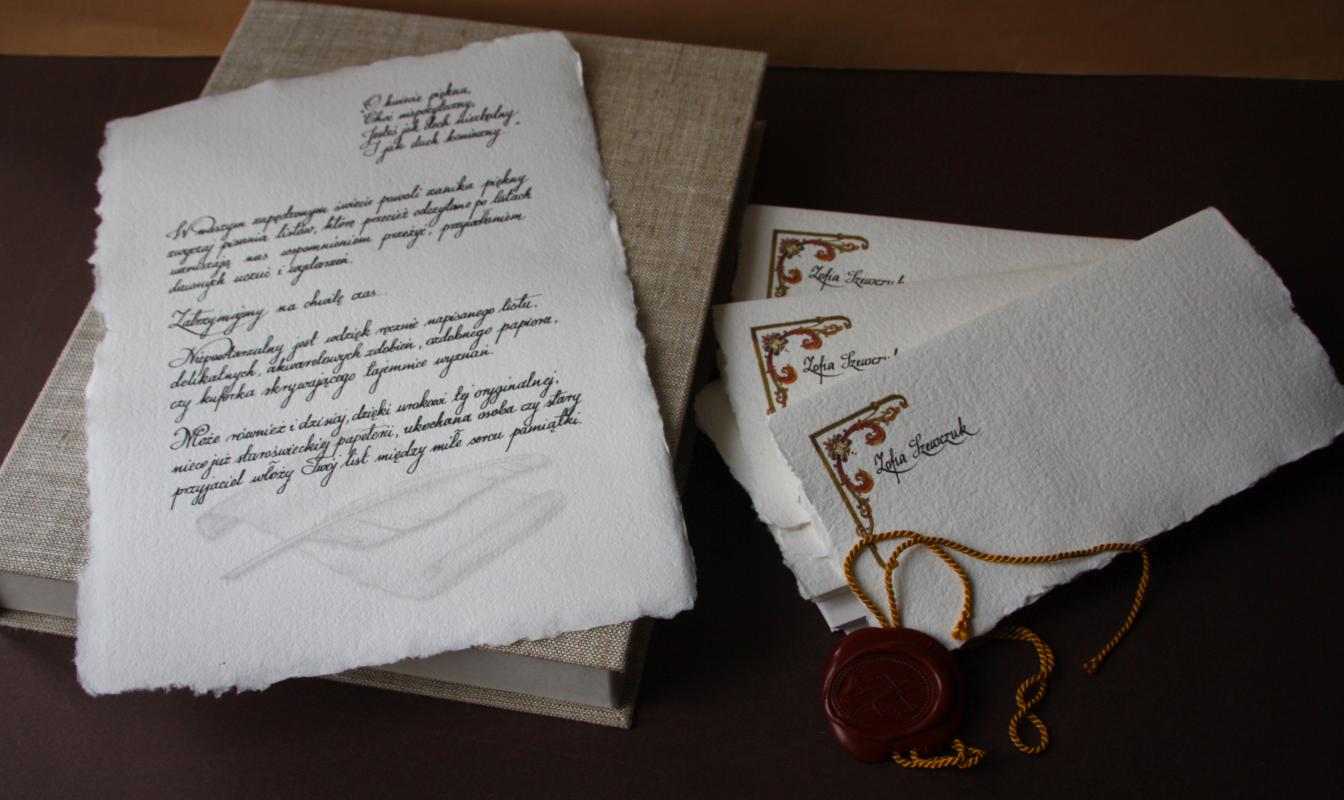 "O kwiecie piękna,
Choć niepożyteczny,
Jesteś jak dech niezbędny
I jak duch konieczny."
W naszym zapędzonym świecie powoli zanika piękny
zwyczaj pisania listów, które przecież odczytane po latach
wzruszają nas wspomnieniem przeżyć, przywołaniem
dawnych uczuć i wydarzeń.
Zatrzymajmy na chwilę czas...
Niepowtarzalny jest wdzięk ręcznie napisanego listu,
delikatnych, akwarelowych zdobień, ozdobnego papieru,
czy kuferka skrywającego tajemnice wyznań.
Może również i dzisiaj, dzięki urokowi tej oryginalnej,
nieco już staroświeckiej papeterii, ukochana osoba czy stary
przyjaciel włoży Twój list między miłe sercu pamiątki.
Zofia Szewcz
Zofia Szewcz
Zofia Szewczuk